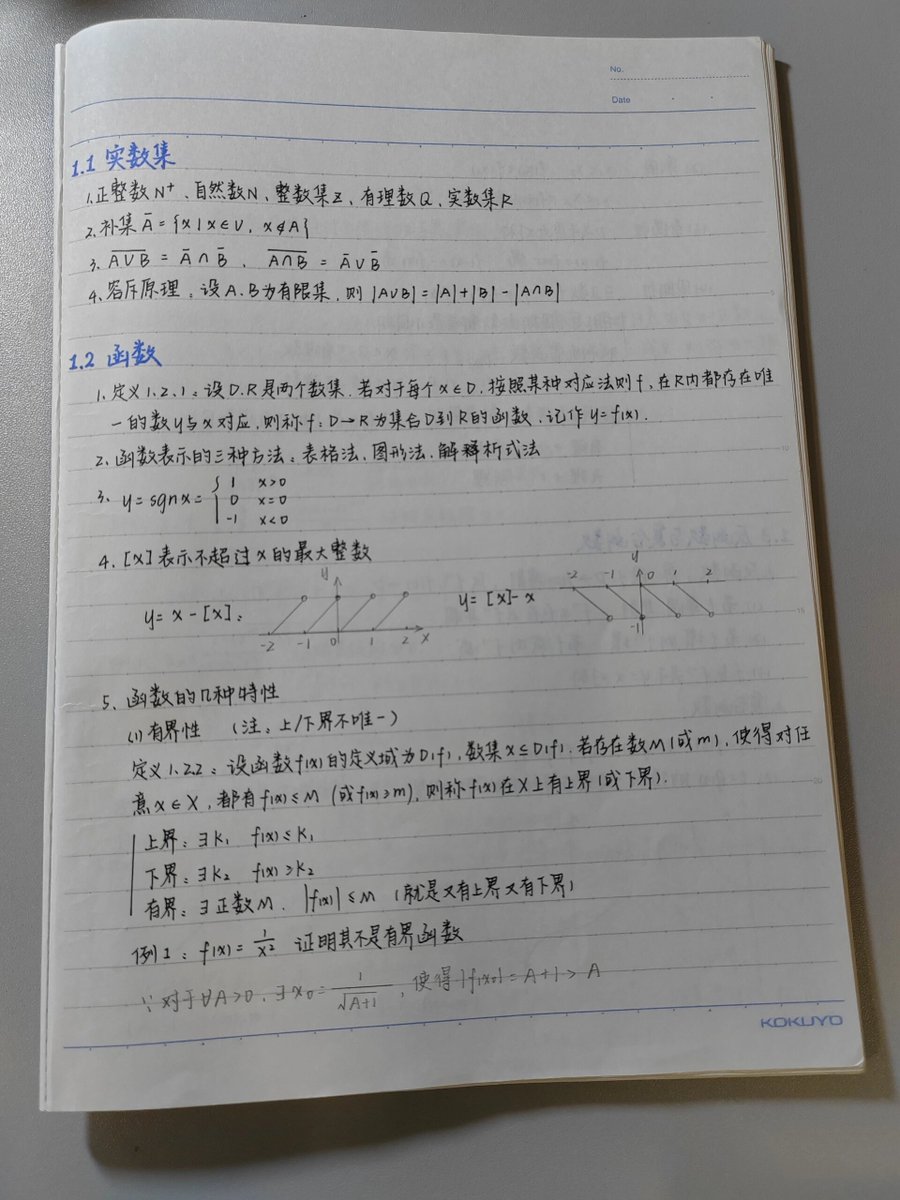 No.
Date
1.1 实数集
1. 正整数N⁺、自然数N、整数集Z、有理数Q、实数集R
2. 补集 Ā = {x | x∈U, x∉A}
3. \overline{A∪B} = Ā∩B̄、 \overline{A∩B} = Ā∪B̄
4. 容斥原理：设A.B为有限集，则 |A∪B| = |A|+|B| - |A∩B|
1.2 函数
1. 定义1.2.1：设D.R是两个数集，若对于每个x∈D，按照某种对应法则f，在R内都存在唯
一的数y与x对应，则称f：D→R为集合D到R的函数，记作y=f(x).
2. 函数表示的三种方法：表格法，图形法，解释析式法
3. y = sgnx = { 1 x>0
0 x=0
-1 x<0
4. [x]表示不超过x的最大整数
y = x - [x]： y -2 -1 0 1 2 x
y = [x] - x y -2 -1 0 1 2 -1
5. 函数的几种特性
(1) 有界性 （注：上/下界不唯一）
定义1.2.2：设函数f(x)的定义域为D(f)，数集X⊆D(f)，若存在数M(或m)，使得对任
意x∈X，都有f(x)≤M（或f(x)≥m)，则称f(x)在X上有上界(或下界).
上界：∃K₁ f(x)≤K₁
下界：∃K₂ f(x)≥K₂
有界：∃正数M，|f(x)|≤M （就是又有上界又有下界）
例1：f(x) = 1/x² 证明其不是有界函数
∵ 对于∀A>0，∃x₀ = 1/√(A+1)，使得|f(x₀)| = A+1 > A
KOKUYO